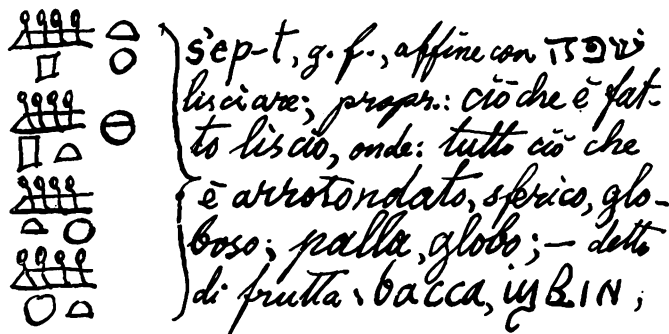 s'ep-t, g. f., affine con שפה
lisciare; propr.: ciò che è fat-
to liscio, onde: tutto ciò che
è arrotondato, sferico, glo-
boso; palla, globo; — detto
di frutta: bacca, ϣⲃⲓⲛ;